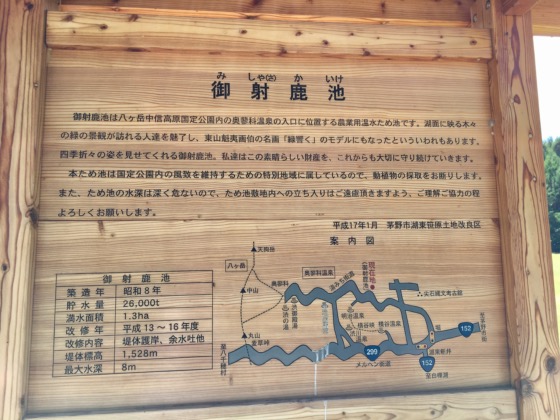 み しゃ(さ) か いけ
御 射 鹿 池
御射鹿池は八ヶ岳中信高原国定公園内の奥蓼科温泉の入口に位置する農業用温水ため池です。湖面に映る木々
の緑の景観が訪れる人達を魅了し、東山魁夷画伯の名画「緑響く」のモデルにもなったといういわれもあります。
四季折々の姿を見せてくれる御射鹿池。私達はこの素晴らしい財産を、これからも大切に守り続けていきます。
本ため池は国定公園内の風致を維持するための特別地域に属しているので、動植物の採取をお断りします。
また、ため池の水深は深く危ないので、ため池敷地内への立ち入りはご遠慮頂きますよう、ご理解ご協力の程
よろしくお願いします。
平成17年1月 茅野市湖東笹原土地改良区
案 内 図
御 射 鹿 池
築 造 年 昭和8年
貯 水 量 26,000t
満水面積 1.3ha
改 修 年 平成13～16年度
改修内容 堤体護岸、余水吐他
堤体標高 1,528m
最大水深 8m
天狗岳
八ヶ岳
中山
奥蓼科
奥蓼科温泉
渋の湯
現在地
(御射鹿池)
尖石縄文考古館
明治温泉
丸山
麦草峠
至八千穂村
299
メルヘン街道
152
152
堀
至茅野市街
至白樺湖